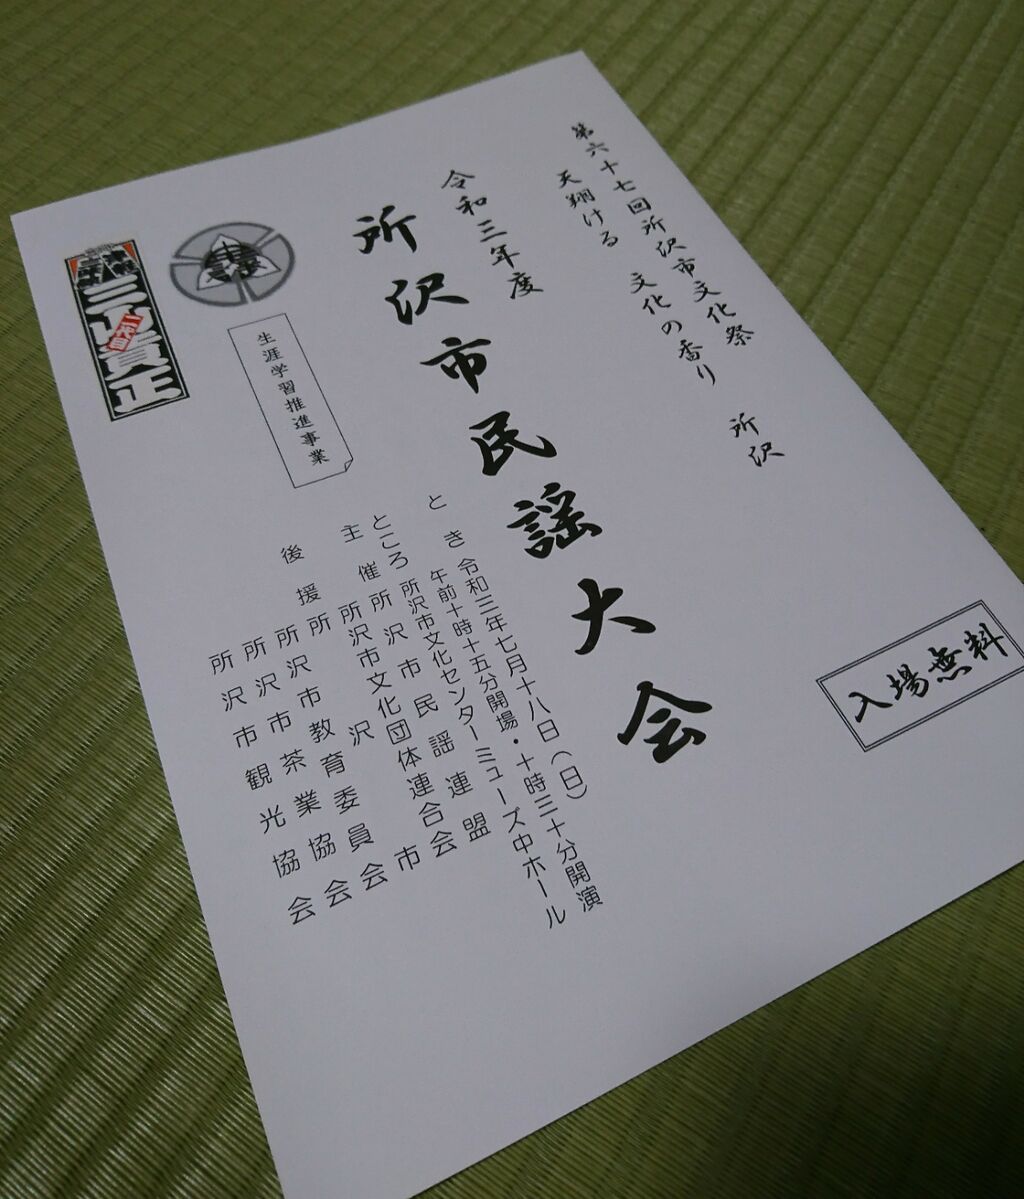 第六十七回所沢市文化祭
天翔ける 文化の香り 所沢
令和三年度
所沢市民謡大会
入場無料
とき 令和三年七月十八日(日)
午前十時十五分開場・十時三十分開演
ところ 所沢市文化センターミューズ中ホール
主催 所沢市民謡連盟
所沢市文化団体連合会
後援 所沢市
所沢市教育委員会
所沢市茶業協会
所沢市観光協会
生涯学習推進事業
貢正